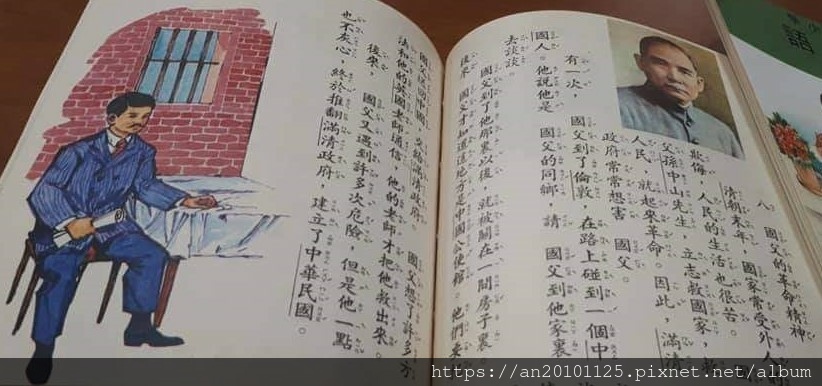 八 國父的革命精神
清朝末年 國家常受外人
欺侮，人民的生活也很苦。
父孫中山先生，立志救國家，救
人民，就起來革命。因此，滿清
政府常常想害 國父。
有一次， 國父到了倫敦，在路上碰到一個中
國人。他說他是 國父的同鄉，請 國父到他家裏
去談談。
國父到了他那裏以後，就被關在一間房子裏
後來 國父才知道這地方是中國公使館。他們要
國父送回中國，交給滿清政府。 國父想了許多方
法和他的英國老師通信，他的老師才把他救出來。
後來， 國父又遇到許多次危險，但是他一點
也不灰心，終於推翻滿清政府，建立了中華民國。
語
https://an20101125.pixnet.net/album